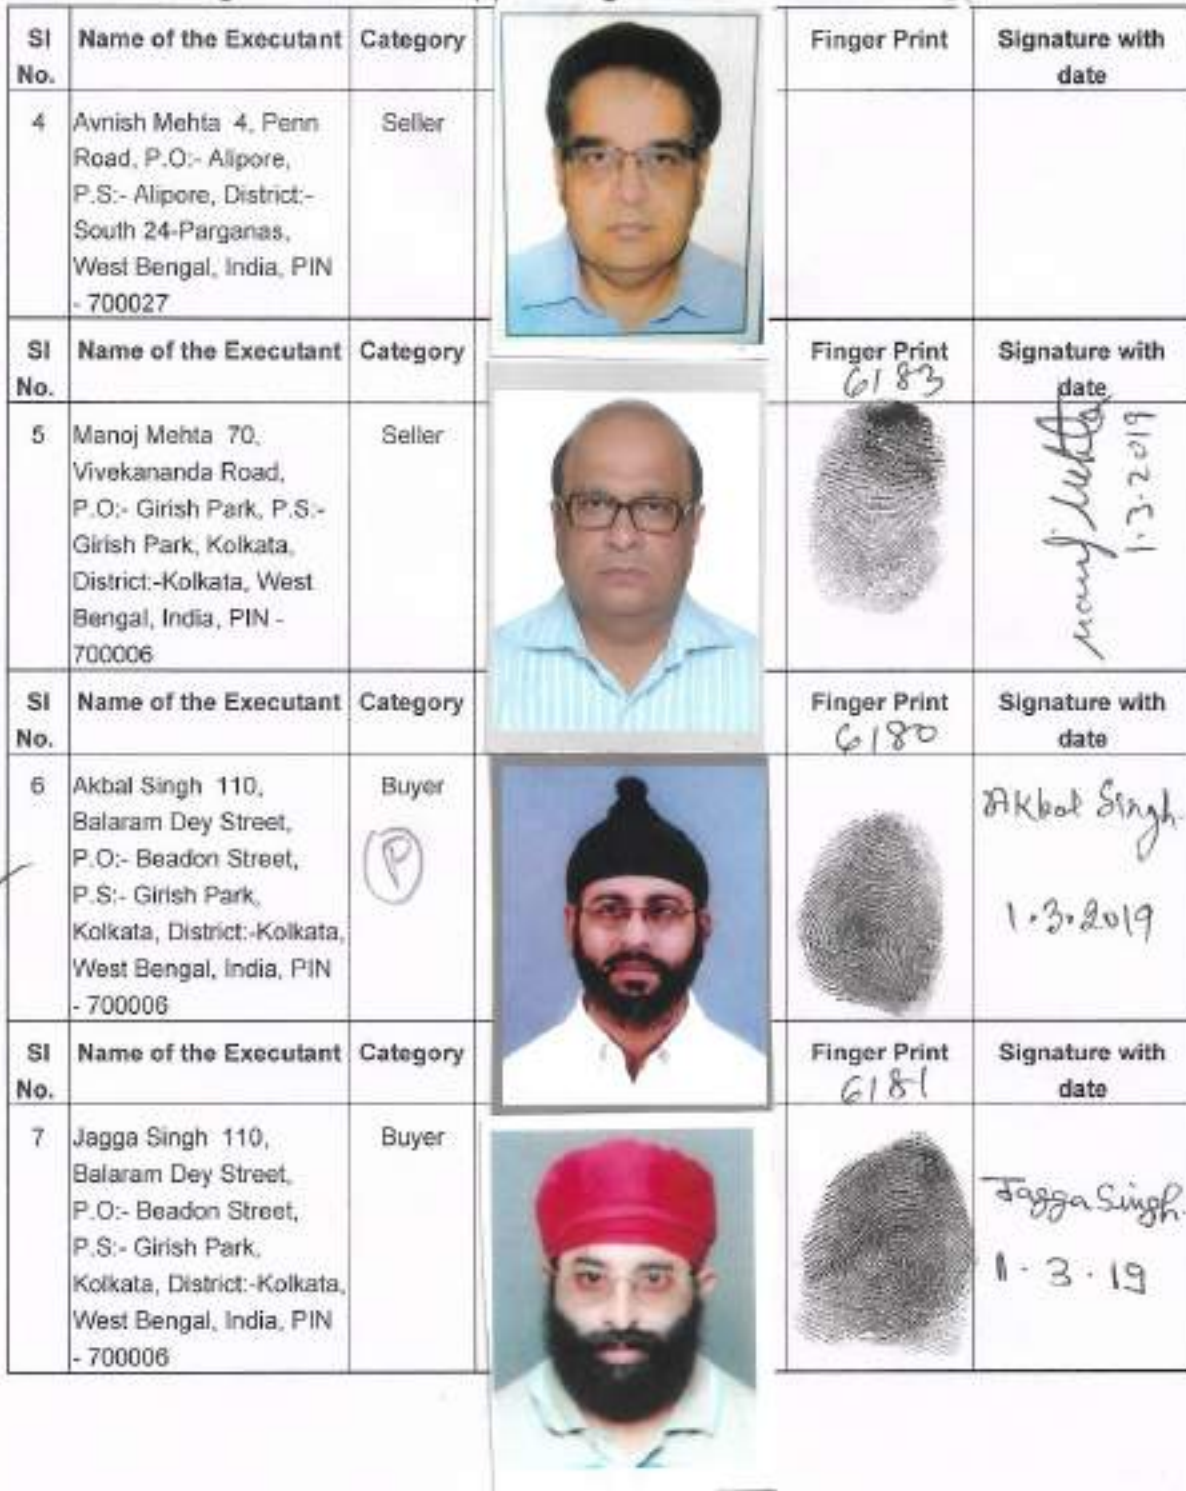 Sl No. Name of the Executant Category Finger Print Signature with date
4 Avnish Mehta 4, Penn Seller
Road, P.O:- Alipore,
P.S:- Alipore, District:-
South 24-Parganas,
West Bengal, India, PIN
- 700027
Sl No. Name of the Executant Category Finger Print Signature with date
6183
5 Manoj Mehta 70, Seller
Vivekananda Road,
P.O:- Girish Park, P.S:-
Girish Park, Kolkata,
District:-Kolkata, West
Bengal, India, PIN -
700006
Manoj Mehta
1.3.2019
Sl No. Name of the Executant Category Finger Print Signature with date
6180
6 Akbal Singh 110, Buyer
Balaram Dey Street,
P.O:- Beadon Street,
P.S:- Girish Park,
Kolkata, District:-Kolkata,
West Bengal, India, PIN
- 700006
P
Akbal Singh
1.3.2019
Sl No. Name of the Executant Category Finger Print Signature with date
6181
7 Jagga Singh 110, Buyer
Balaram Dey Street,
P.O:- Beadon Street,
P.S:- Girish Park,
Kolkata, District:-Kolkata,
West Bengal, India, PIN
- 700006
Jagga Singh
1.3.19